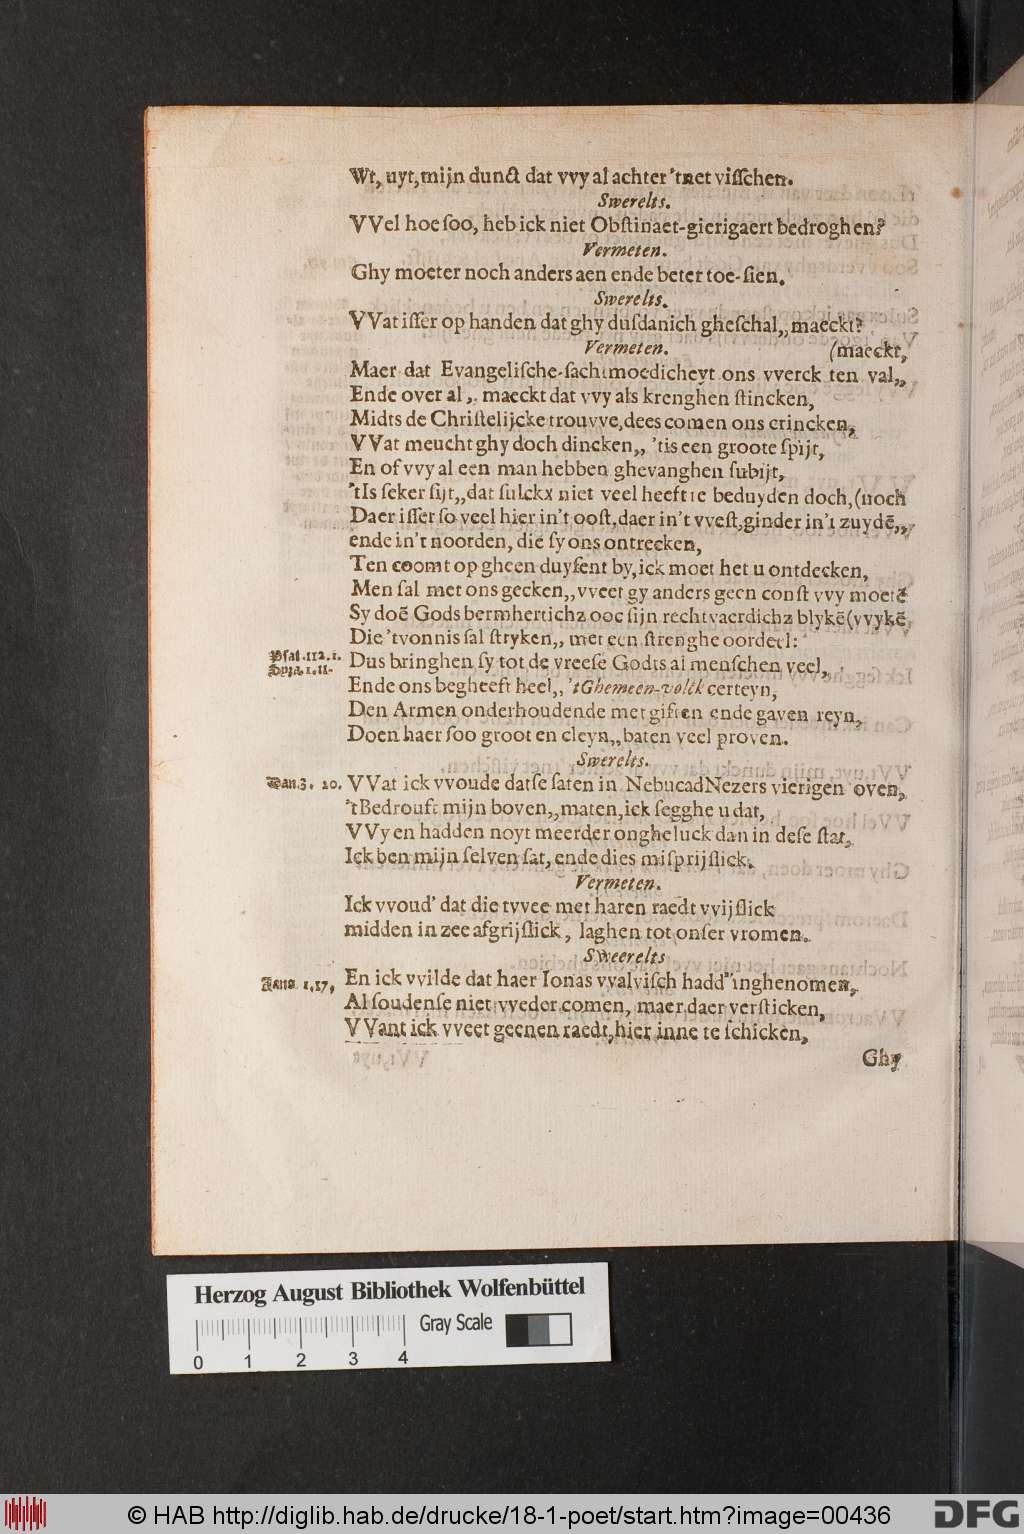 Wt, uyt, mijn dunct dat vvy al achter 'tnet visschen.
Swerelts.
VVel hoe soo, heb ick niet Obstinaet-gierigaert bedroghen?
Vermeten.
Ghy moeter noch anders aen ende beter toe-sien.
Swerelts.
VVat isser op handen dat ghy dusdanich gheschal,, maeckt?
Vermeten. (maeckt,
Maer dat Evangelische-sachtmoedicheyt ons vverck ten val,,
Ende over al,, maeckt dat vvy als krenghen stincken,
Midts de Christelijcke trouvve, dees comen ons crincken,
VVat meucht ghy doch dincken,, 'tis een groote spijt,
En of vvy al een man hebben ghevanghen subijt,
'tIs seker sijt,, dat sulckx niet veel heeft te beduyden doch, (noch
Daer isser so veel hier in't oost, daer in't vvest, ginder in't zuydē,,
ende in't noorden, die sy ons ontrecken,
Ten coomt op gheen duysent by, ick moet het u ontdecken,
Men sal met ons gecken,, vveet gy anders geen const vvy moetē
Sy doē Gods bermhertichz ooc sijn rechtvaerdichz blykē (vvykē,
Die 'tvonnis sal stryken,, met een strenghe oordeel:
Psal. 112. 1. Dus bringhen sy tot de vreese Godts al menschen veel,
Ende ons begheeft heel,, 'tGhemeen-volck certeyn,
Den Armen onderhoudende met giften ende gaven reyn,
Doen haer soo groot en cleyn,, baten veel proven.
Swerelts.
Dan. 3. 20. VVat ick vvoude datse saten in NebucadNezers vierigen oven,
'tBedrouft mijn boven,, maten, ick segghe u dat,
VVy en hadden noyt meerder ongheluck dan in dese stat,
Ick ben mijn selven sat, ende dies misprijslick.
Vermeten.
Ick vvoud' dat die tvvee met haren raedt vvijslick
midden in zee afgrijslick, laghen tot onser vromen.
Sweerelts
Jona. 1, 17, En ick vvilde dat haer Ionas vvalvisch hadd' inghenomen,
Al soudense niet vveder comen, maer daer versticken,
VVant ick vveet geenen raedt, hier inne te schicken,
Ghy
Herzog August Bibliothek Wolfenbüttel
Gray Scale
0 1 2 3 4
© HAB http://diglib.hab.de/drucke/18-1-poet/start.htm?image=00436
DFG